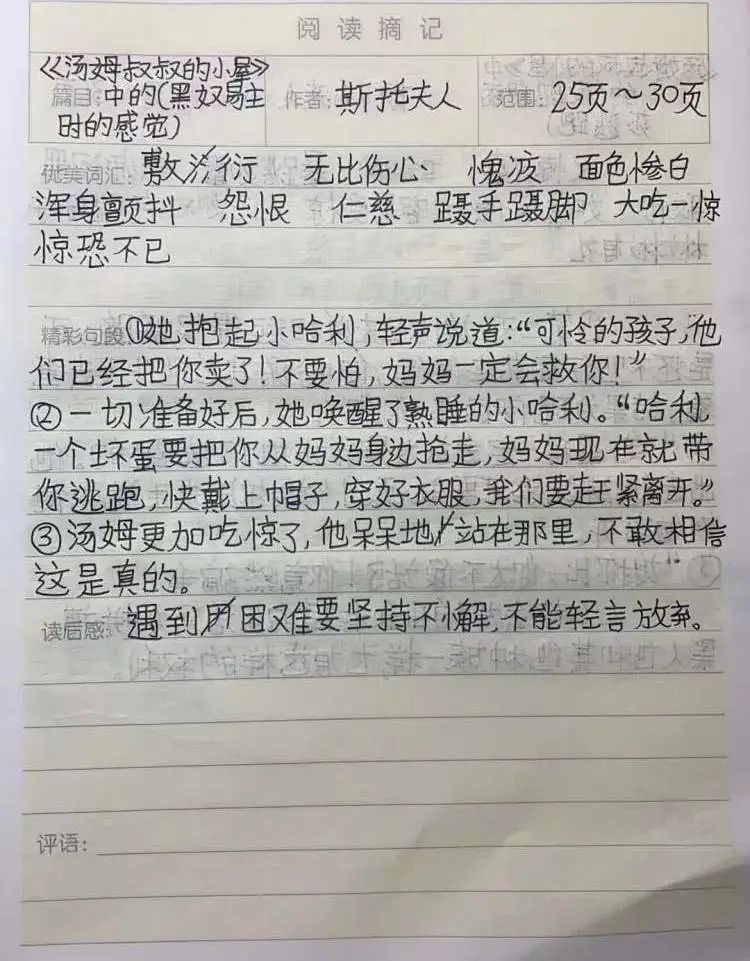 阅读摘记
《汤姆叔叔的小屋》
篇目: 中的(黑奴易主时的感觉) 作者: 斯托夫人 范围: 25页~30页
优美词汇: 敷衍 无比伤心 愧疚 面色惨白
浑身颤抖 怨恨 仁慈 蹑手蹑脚 大吃一惊
惊恐不已
精彩句段 ①她抱起小哈利,轻声说道:“可怜的孩子,他
们已经把你卖了!不要怕,妈妈一定会救你!”
②一切准备好后,她唤醒了熟睡的小哈利。“哈利,
一个坏蛋要把你从妈妈身边抢走,妈妈现在就带
你逃跑,快戴上帽子,穿好衣服,我们要赶紧离开。”
③汤姆更加吃惊了,他呆呆地站在那里,不敢相信
这是真的。
读后感: 遇到困难要坚持不懈,不能轻言放弃。
评语: